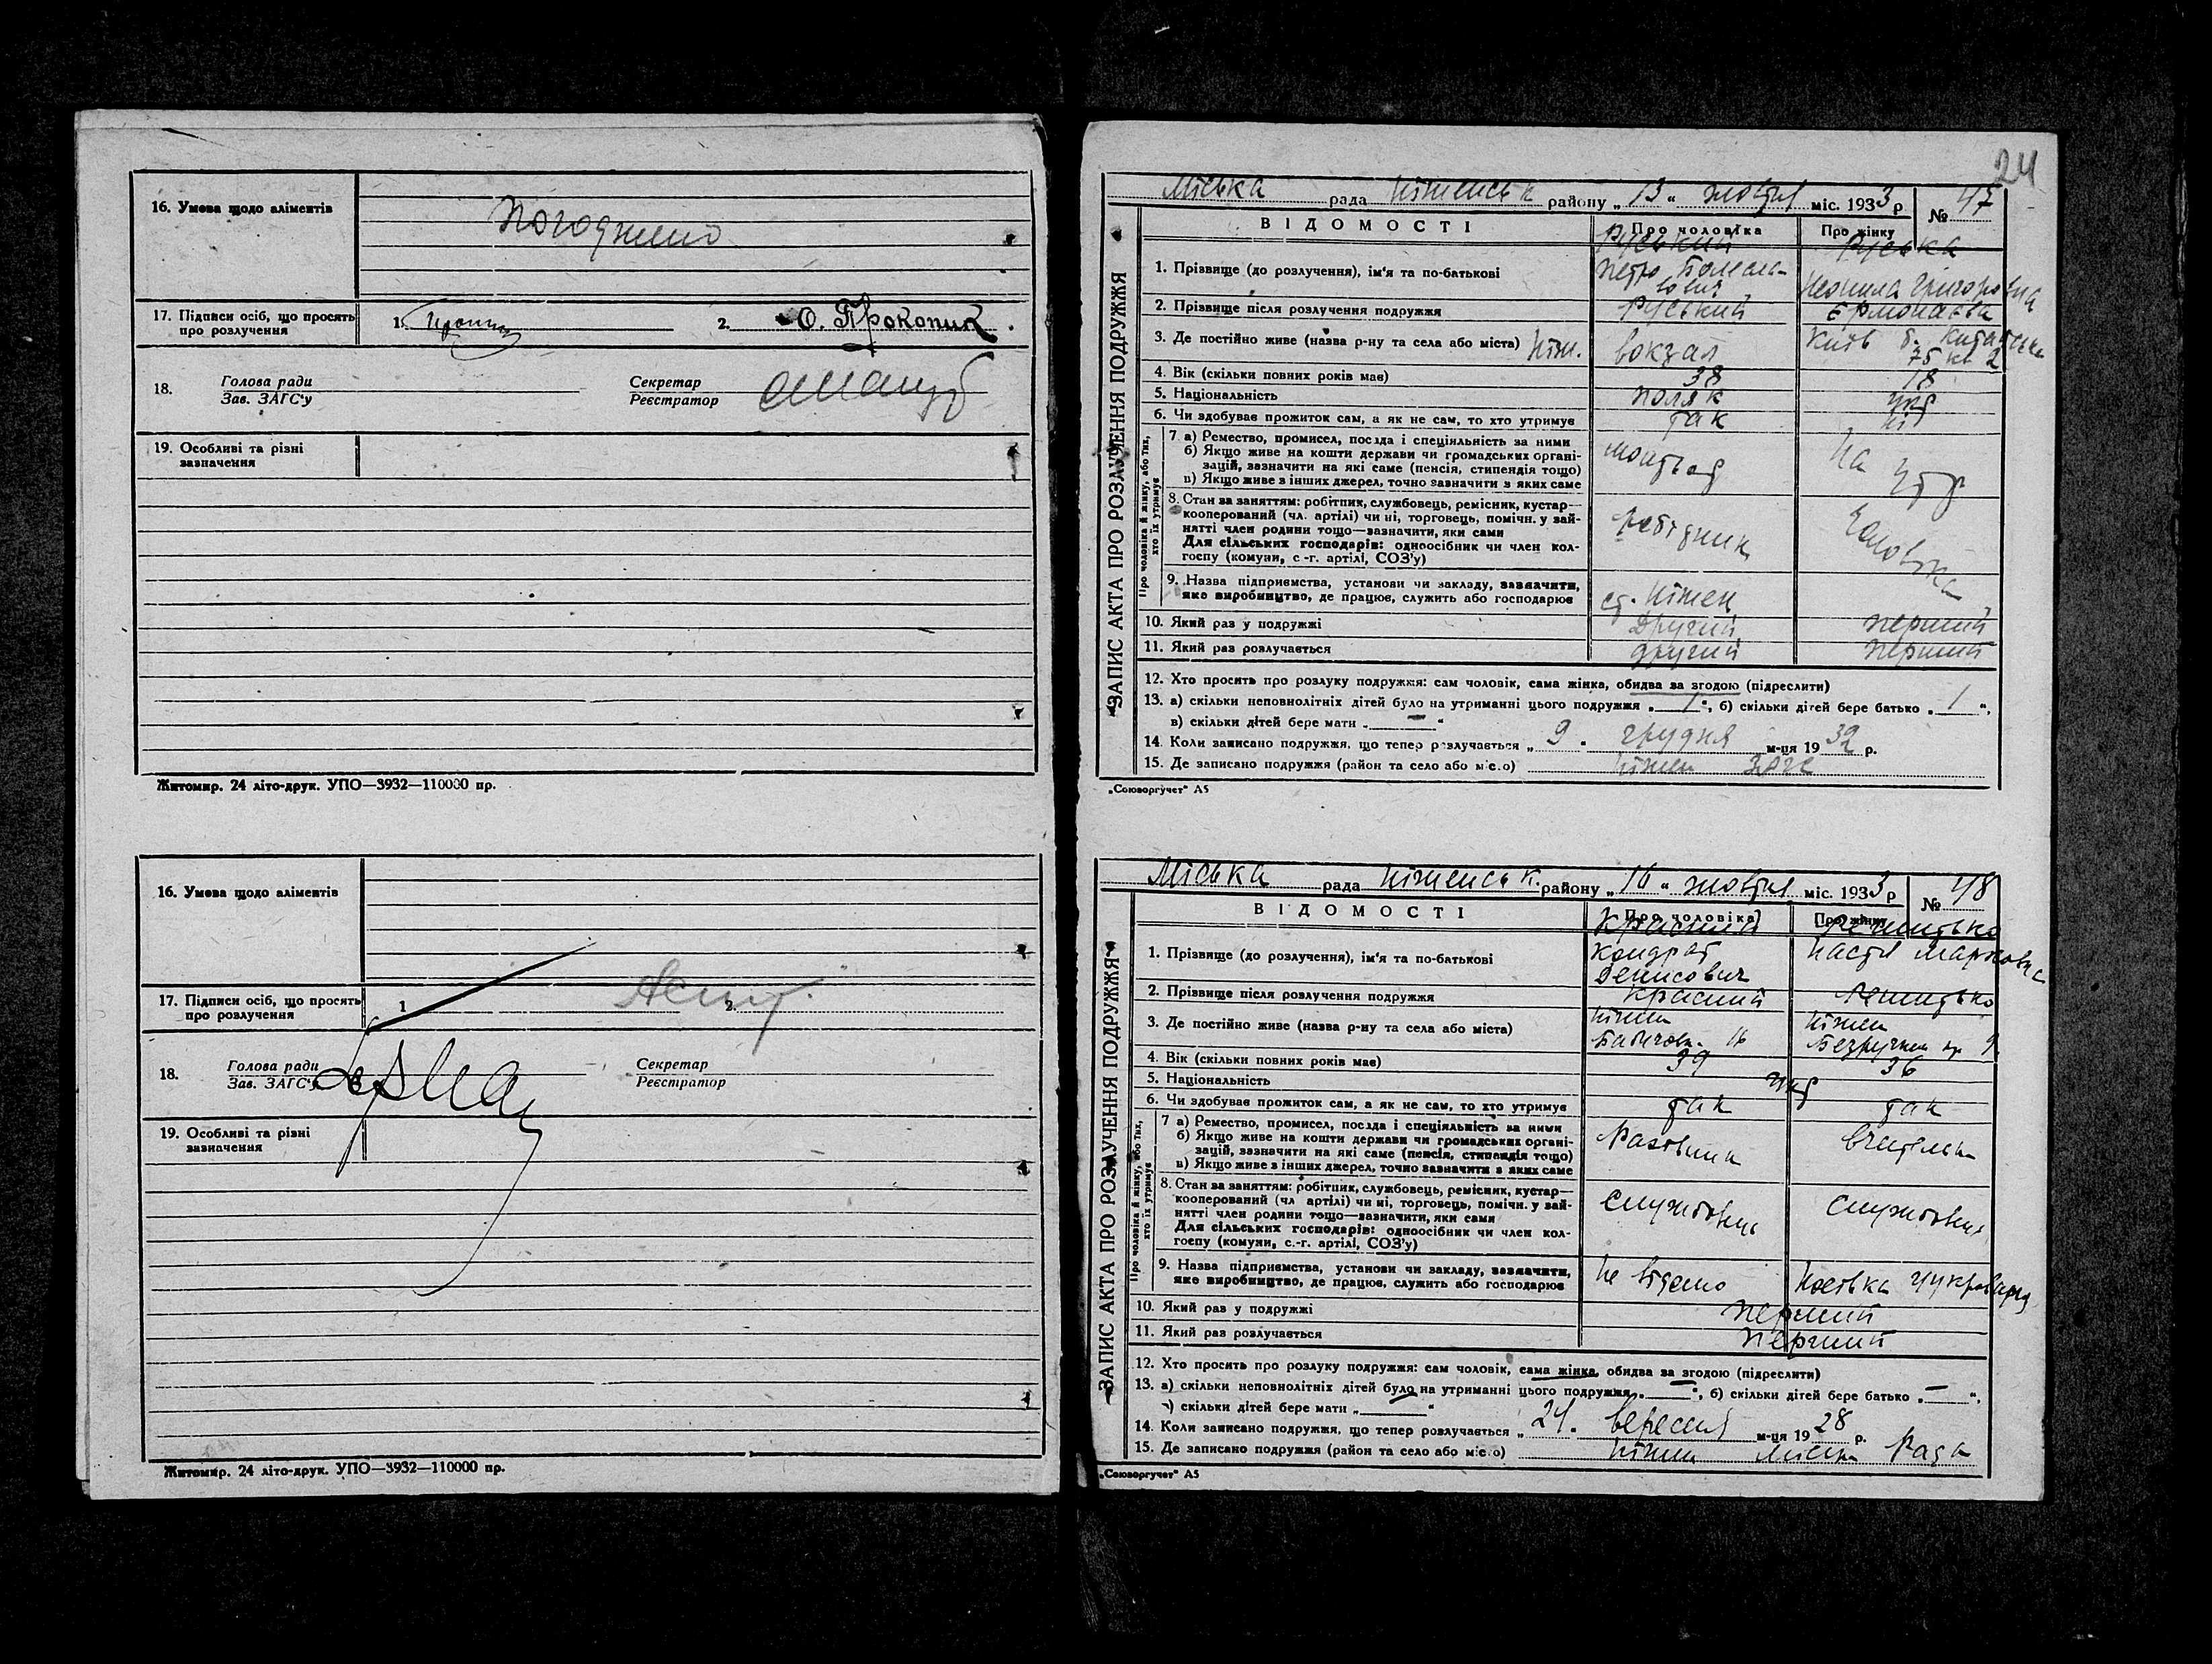 16. Умова щодо аліментів
Погоджено
17. Підписи осіб, що просять
про розлучення
1.
2. О. Прокопик
18.
Голова ради
Зав. ЗАГС'у
Секретар
Реєстратор
19. Особливі та різні
зазначення
Житомир. 24 літо-друк. УПО—3932—110000 пр.
16. Умова щодо аліментів
17. Підписи осіб, що просять
про розлучення
1
2.
18.
Голова ради
Зав. ЗАГС'у
Секретар
Реєстратор
19. Особливі та різні
зазначення
Житомир. 24 літо-друк. УПО—3932—110000 пр.
24
ЗАПИС АКТА ПРО РОЗЛУЧЕННЯ ПОДРУЖЖЯ
Міська рада Ніженськ району „ 13 “ жовтня міс. 1933 р № 47
ВІДОМОСТІ
Про чоловіка
Про жінку
1. Прізвище (до розлучення), ім'я та по-батькові
Руський
Петро
Руська
Григоровна
2. Прізвище після розлучення подружжя
Руський
3. Де постійно живе (назва р-ну та села або міста) Ніж.
вокзал
Київ
75 кв 2
4. Вік (скільки повних років має)
38
18
5. Національність
поляк
укр
6. Чи здобуває прожиток сам, а як не сам, то хто утримує
так
ні
Про чоловіка й жінку, або тих,
хто їх утримує
7 а) Ремество, промисел, посада і спеціяльність за ними
б) Якщо живе на кошти держави чи громадських органі-
зацій, зазначити на які саме (пенсія, стипендія тощо)
в) Якщо живе з інших джерел, точно зазначити з яких саме
На утр
8. Стан за заняттям: робітник, службовець, ремісник, кустар—
кооперований (чл. артілі) чи ні, торговець, помічн. у зай-
нятті член родини тощо—зазначити, яки сами
Для сільських господарів: одноосібник чи член кол-
госпу (комуни, с.-г. артілі, СОЗ'у)
робітник
9. Назва підприємства, установи чи закладу, зазначити,
яке виробництво, де працює, служить або господарює
ст. Ніжен
10. Який раз у подружжі
Другий
перший
11. Який раз розлучається
другий
перший
12. Хто просить про розлуку подружжя: сам чоловік, сама жінка, обидва за згодою (підреслити)
13. а) скільки неповнолітніх дітей було на утриманні цього подружжя „ 1 “, б) скільки дітей бере батько „ 1 “,
в) скільки дітей бере мати „ — “
14. Коли записано подружжя, що тепер розлучається „ 9 . грудня м-ця 1932 р.
15. Де записано подружжя (район та село або місто) Ніжен ЗАГС
„Союзоргучет“ А5
ЗАПИС АКТА ПРО РОЗЛУЧЕННЯ ПОДРУЖЖЯ
Міська рада Ніженськ. району „ 16 “ жовтня міс. 1933 р № 48
ВІДОМОСТІ
Про чоловіка
Про жінку
1. Прізвище (до розлучення), ім'я та по-батькові
Кондрат
Денисович
Настя Марковна
2. Прізвище після розлучення подружжя
Красний
3. Де постійно живе (назва р-ну та села або міста)
Ніжен
16
Ніжен
9
4. Вік (скільки повних років має)
39
36
5. Національність
укр
6. Чи здобуває прожиток сам, а як не сам, то хто утримує
так
так
Про чоловіка й жінку, або тих,
хто їх утримує
7 а) Ремество, промисел, посада і спеціяльність за ними
б) Якщо живе на кошти держави чи громадських органі-
зацій, зазначити на які саме (пенсія, стипендія тощо)
в) Якщо живе з інших джерел, точно зазначити з яких саме
Рахівник
вчителька
8. Стан за заняттям: робітник, службовець, ремісник, кустар—
кооперований (чл артілі) чи ні, торговець, помічн. у зай-
нятті член родини тощо—зазначити, яки сами
Для сільських господарів: одноосібник чи член кол-
госпу (комуни, с.-г. артілі, СОЗ'у)
службовець
службовець
9. Назва підприємства, установи чи закладу, зазначити,
яке виробництво, де працює, служить або господарює
не відомо
10. Який раз у подружжі
перший
11. Який раз розлучається
перший
12. Хто просить про розлуку подружжя: сам чоловік, сама жінка, обидва за згодою (підреслити)
13. а) скільки неповнолітніх дітей було на утриманні цього подружжя „ — “, б) скільки дітей бере батько „ — “,
в) скільки дітей бере мати „ “
14. Коли записано подружжя, що тепер розлучається „ 24. вересня м-ця 1928 р.
15. Де записано подружжя (район та село або місто) Ніжен Міськ Рада
„Союзоргучет“ А5